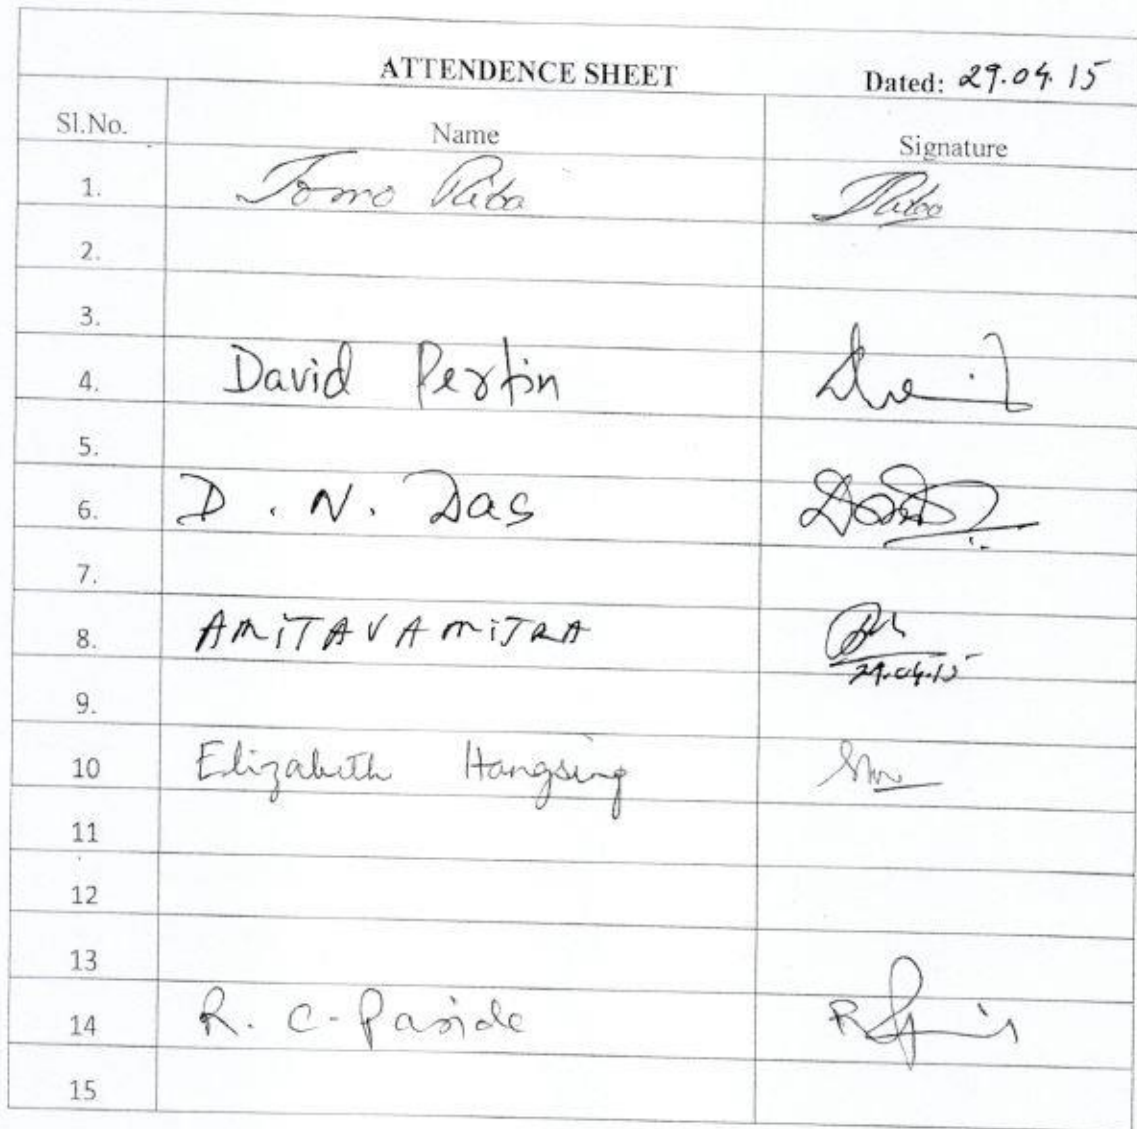 ATTENDENCE SHEET Dated: 29.04.15
Sl.No. Name Signature
1. Tomo Riba Riba
2.
3.
4. David Pertin
5.
6. D. N. Das
7.
8. AMiTAVA MiTRA
29.04.15
9.
10 Elizabeth Hangsing
11
12
13
14 R. C. Paride
15